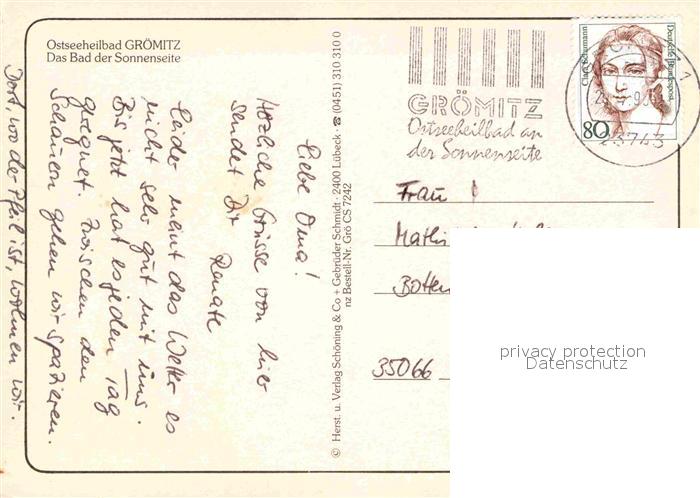 Ostseeheilbad GRÖMITZ
Das Bad der Sonnenseite
Liebe Oma!
Herzliche Grüsse von hier
sendet Dir
Renate
Leider meint das Wetter es
nicht sehr gut mit uns.
Bis jetzt hat es jeden Tag
geregnet. Zwischen den
Schauern gehen wir spazieren.
Dort, wo der Pfeil ist, wohnen wir.
© Herst. u. Verlag Schöning & Co + Gebrüder Schmidt · 2400 Lübeck · ☎ (0451) 310 310 0
nz Bestell-Nr. Grö CS 7242
GRÖMITZ
Ostseeheilbad an
der Sonnenseite
Clara Schumann
Deutsche Bundespost
80
1
23743
Frau
Mathi
Botten
35066
privacy protection
Datenschutz